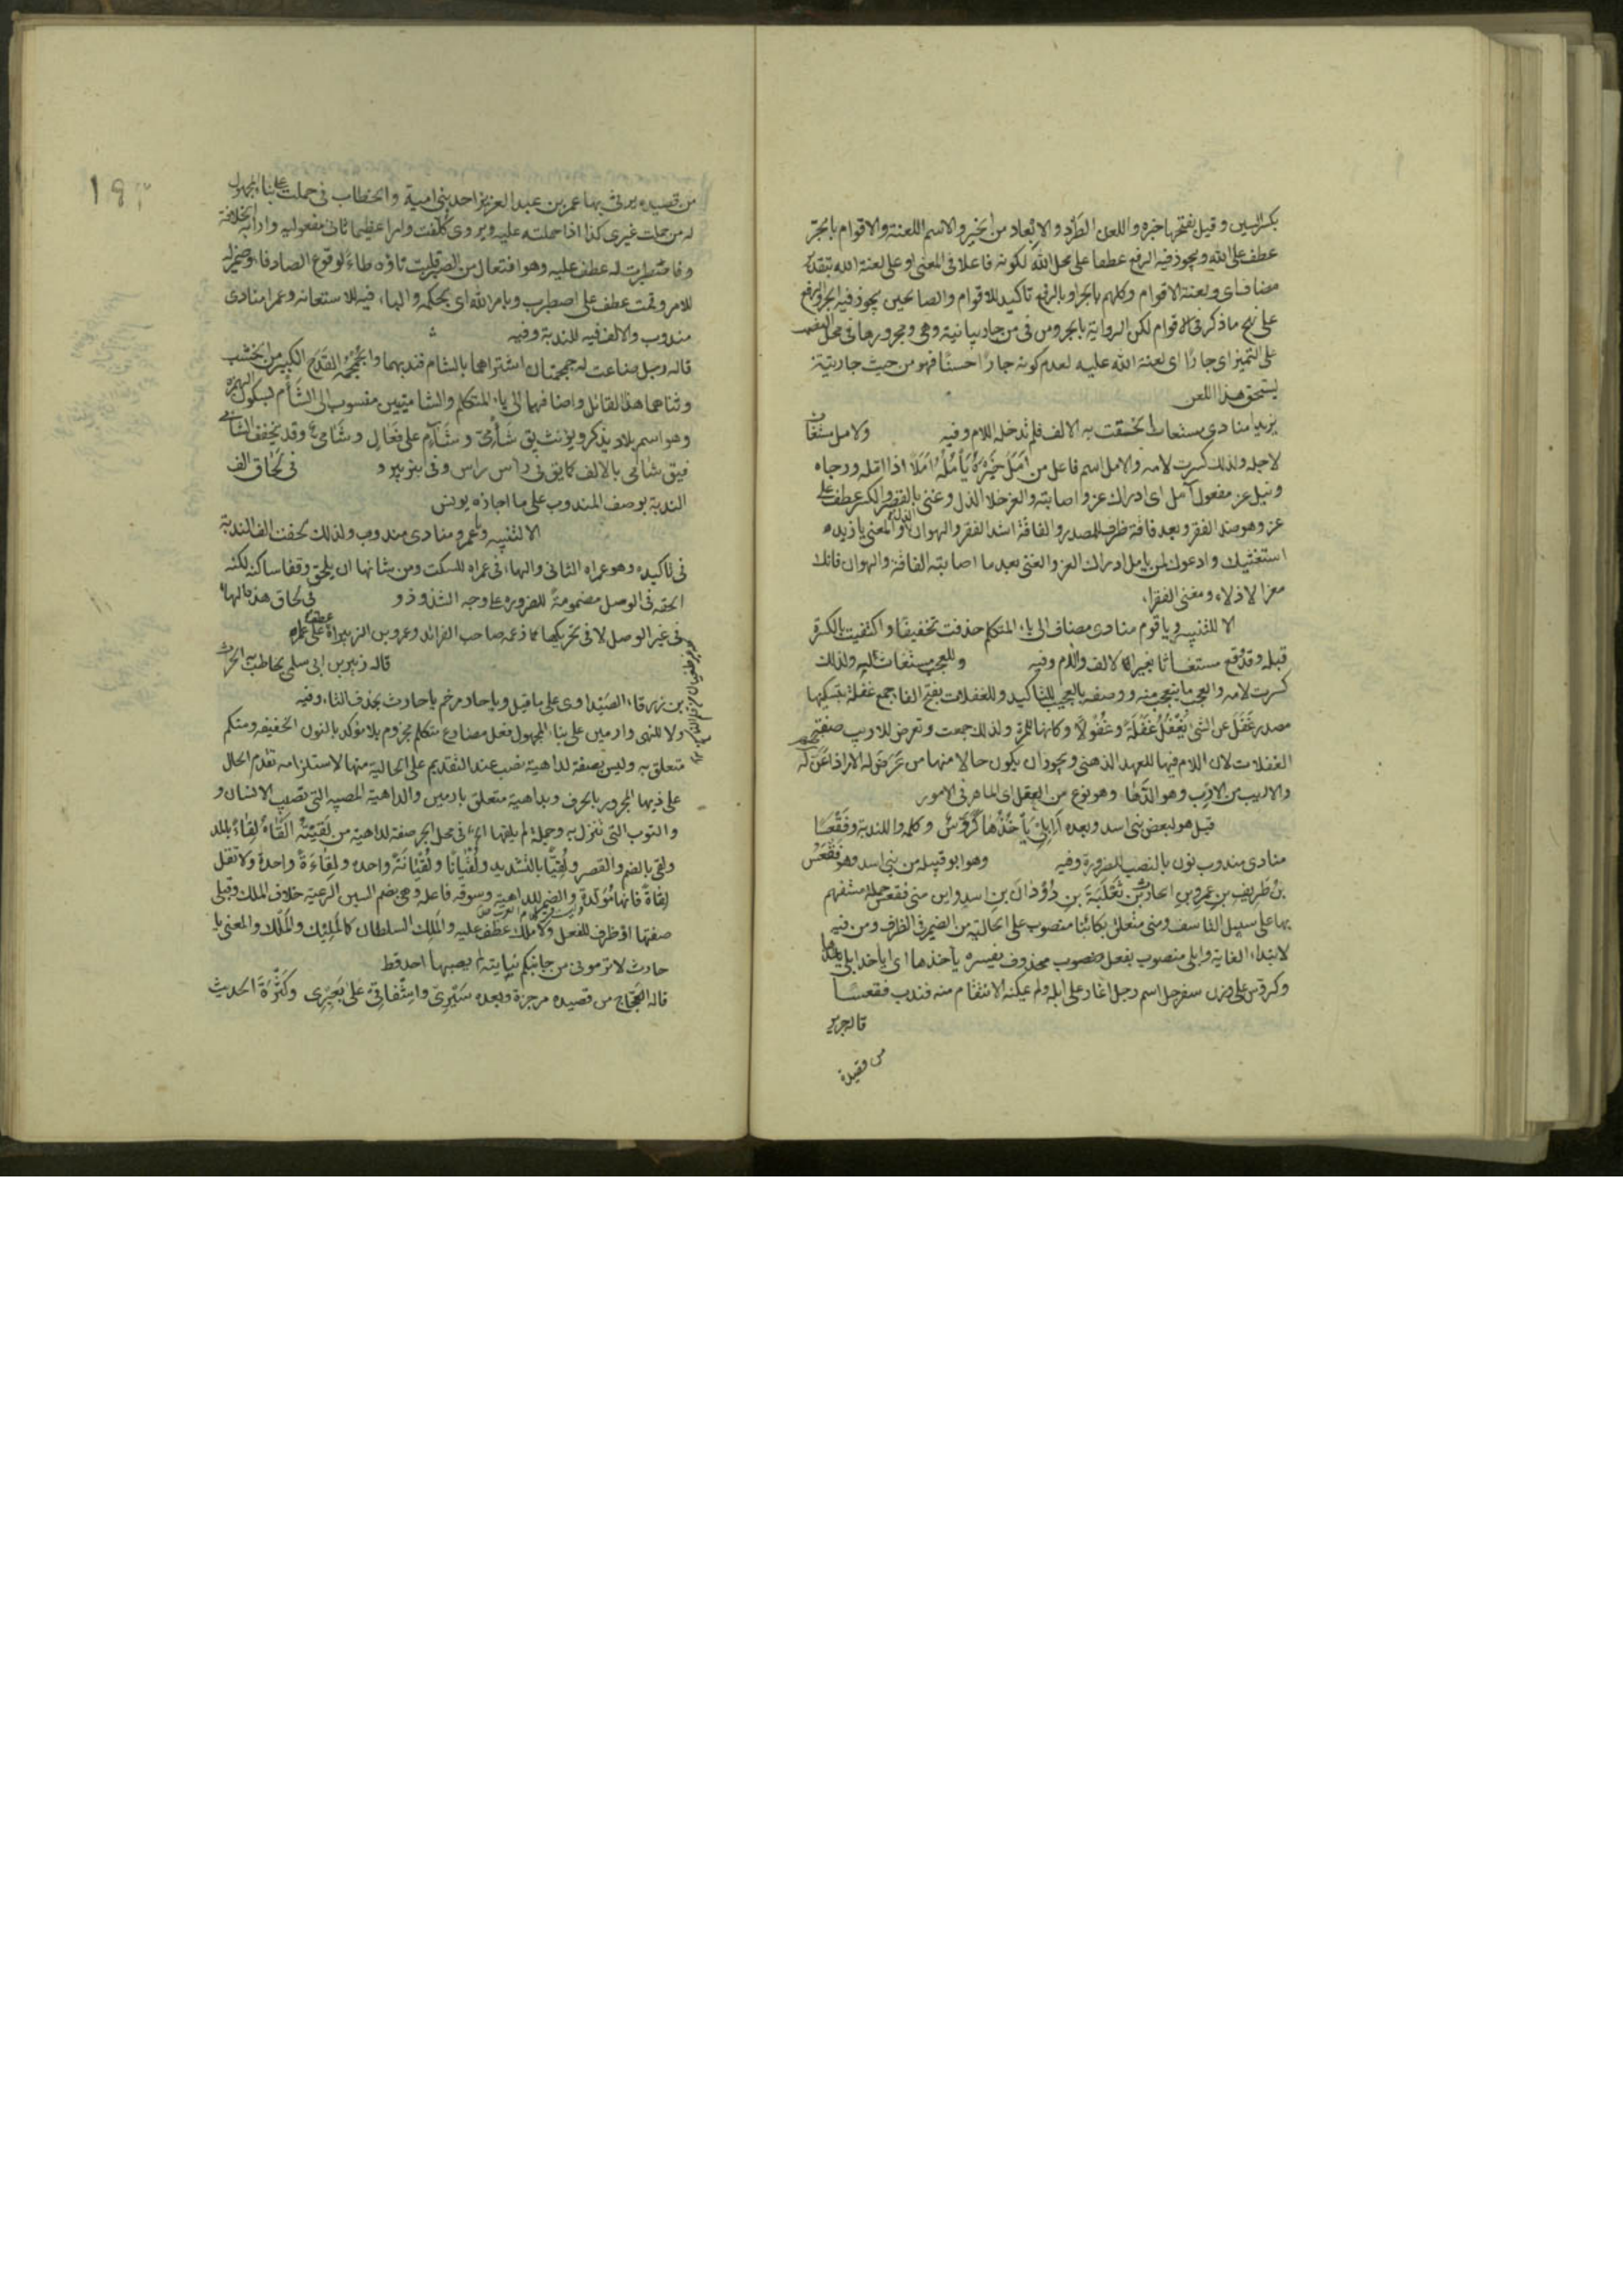 بكسر السين وقيل بفتحها خبره واللعن الطَّرْد والابْعاد من الخير والاسم اللعنة والاقوام بالجرّ
عطف على الله ويجوز فيه الرفع عطفا على محل الله لكونه فاعلا فى المعنى او على لعنة الله بتقدير
مضاف اى ولعنة الاقوام وكلهم بالجر او بالرفع تاكيد للاقوام والصالحين يجوز فيه الجر والرفع
على نهج ما ذكر فى الاقوام لكن الرواية بالجر ومن فى من جار بيانية وهى ومجرورها فى محل النصب
على التميز اى جارًا اى لعنة الله عليه لعدم كونه جارًا حسنًا فهو من حيث جاريته
يستحق هذا اللعن
يزيدا منادى مستغاث لحقت به الالف فلم تدخله اللام وفيه ولامل مستغاث
لاجله ولذلك كسرت لامه والامل اسم فاعل من اَمَلَ خَيْرَهُ يَأْمُلُهُ اَمَلًا اذا امله ورجاه
ونيل عز مفعول آمل اى ادراك عز واصابته والعز خلاف الذل وغنى بالقصر والكسر عطف على
عز وهو ضد الفقر وبعد فاقة ظرف للمصدر والفاقة اشد الفقر والهوان الذل والمعنى يا زيده
استغثيك وادعوك لمن يامل ادراك العز والغنى بعد ما اصابته الفاقة والهوان فانك
معز الاذلاء ومغنى الفقراء
الا للتنبيه ويا قوم منادى مضاف الى ياء المتكلم حذفت تخفيفًا واكتفيت بالكسرة
قبله وقد وقع مستغاثا بغير الالف واللام وفيه وللعجب مستغاث اليه ولذلك
كسرت لامه والعجب ما يتعجب منه ووصفه بالعجيب للتاكيد وللغفلات بفتح الفاء جمع غفلة بتسكينها
مصدر غَفَلَ عن الشئ يَغْفُلُ غَفْلَةً وغُفُولًا وكانها للمرة ولذلك جمعت وتعرض للاريب صفة
الغفلات لان اللام فيها للعهد الذهنى ويجوز ان يكون حالا منها من عَرَضَ له الامر اذا عَنَّ له
والاريب من الاِرْبِ وهو الدَّهاء وهو نوع من العقل اى الماهر فى الامور
قيل هو لبعض بنى اسد وبعده اَاِبِلِىْ يَأْخُذُهَا كَرَوَّسُ وكلمة وا للندبة وفَقْعَسًا
منادى مندوب نون بالنصب للضرورة وفيه وهو ابو قبيلة من بنى اسد وهو فَقْعَسُ
بنُ طَرِيفِ بنِ عَمرِو بنِ الحارِثِ بنِ ثَعْلَبَةَ بنِ دُوْدَانَ بنِ اسد واين منى فقعس جملة مستفهم
بها على سبيل التاسف ومنى متعلق بكائنا منصوب على الحالية من الضمير فى الظرف ومن فيه
لابتداء الغاية وابلى منصوب بفعل محذوف يفسره يأخذها اى ايأخذ ابلى يأخذها
وكروس على وزن سفرجل اسم رجل اغار على ابله ولم يمكنه الانتقام منه فندب فقعسًا
قاله جرير
من قصيدة
١٩٢
من قصيده يرثى بها عمر بن عبد العزيز احد بنى امية والخطاب فى حملت على بناء المجهول
له من حملت غيرى كذا اذا حملته عليه ويروى كُلّفت وامرا عظيما ثانى مفعوليه واراد به الخلافة
وفاصطبرت له عطف عليه وهو افتعال من الصبر قلبت تاؤه طاء لوقوع الصاد فاء وضمير له
للامر وقمت عطف على اصطبرت وبامر الله اى بحكمه والباء فيه للاستعانة وعمرا منادى
مندوب والالف فيه للندبة وفيه
قاله رجل ضاعت له جمجمتان اشتراهما بالشام فندبهما والجُمْجُمة القَدَح الكبير من الخشب
وثناهما هذا القائل واضافهما الى ياء المتكلم والشاميتين منسوب الى الشَأْم بسكون الهمزة
وهو اسم بلاد يذكر ويؤنث يق شَأْمىّ وشَآمٍ على فَعَالٍ وشَامىّ وقد يخفف الشامى
فيق شامى بالالف كما يق فى رأس راس وفى بئر بير و فى لحاق الف
الندبة بوصف المندوب على ما اجازه يونس
الا للتنبيه ويا عمرو منادى مندوب ولذلك لحقت الف الندبة
فى تاكيده وهو عمراه الثانى والهاء فى عمراه للسكت ومن شانها ان يلحق وقفا ساكنة لكنه
الحقه فى الوصل مضمومةً للضرورة على وجه الشذوذ و فى لحاق هذه الهاء
فى غير الوصل لا فى تحريكها كما زعمه صاحب الفرائد وعمرو بن الزبيراه عطف على عمراه
قاله زهير بن ابى سلمى يخاطب به الحرث
بن زرقاء الصَّيْداوى على ما قيل ويا حار مرخم يا حارث بحذف الثاء وفيه
ولا للنهى وارمين على بناء المجهول فعل مضارع متكلم مجزوم بلا مؤكد بالنون الخفيفه ومنكم
متعلق به وليس بصفة لداهية نصب عند التقديم على الحالية منها لاستلزامه تقدم الحال
على ذيها المجرور بالحرف وبداهية متعلق بارمين والداهية المصيبه التى تصيب الانسان و
والنوب التى تنزل به وجملة لم يلقها اه فى محل الجر صفة لداهية من لَقَيْتُهُ اَلْقَاهُ لِقَاءً بالمد
ولقى بالضم والقصر ولُقِيًّا بالتشديد ولُقْيَانًا ولُقْيَانَةً واحدة ولِقَاءَةً واحدة ولا تقل
لِقَاةً فانها مُوَلّدة والضمير للداهية وسوقة فاعله وهى بضم السين الرعية خلاف الملك وقبلى
صفتها او ظرف للفعل ولا ملك عطف عليه والمَلِك السلطان كالمليك والمَلْك والمعنى يا
حادث لا ترمونى من جانبكم بنايبة لم يصبها احد قط
قاله العَجّاج من قصيده مرجزة وبعده سَيْرِى واشْفاقِىْ عَلَى بَعِيْرِى وكَثْرَةَ الحديث